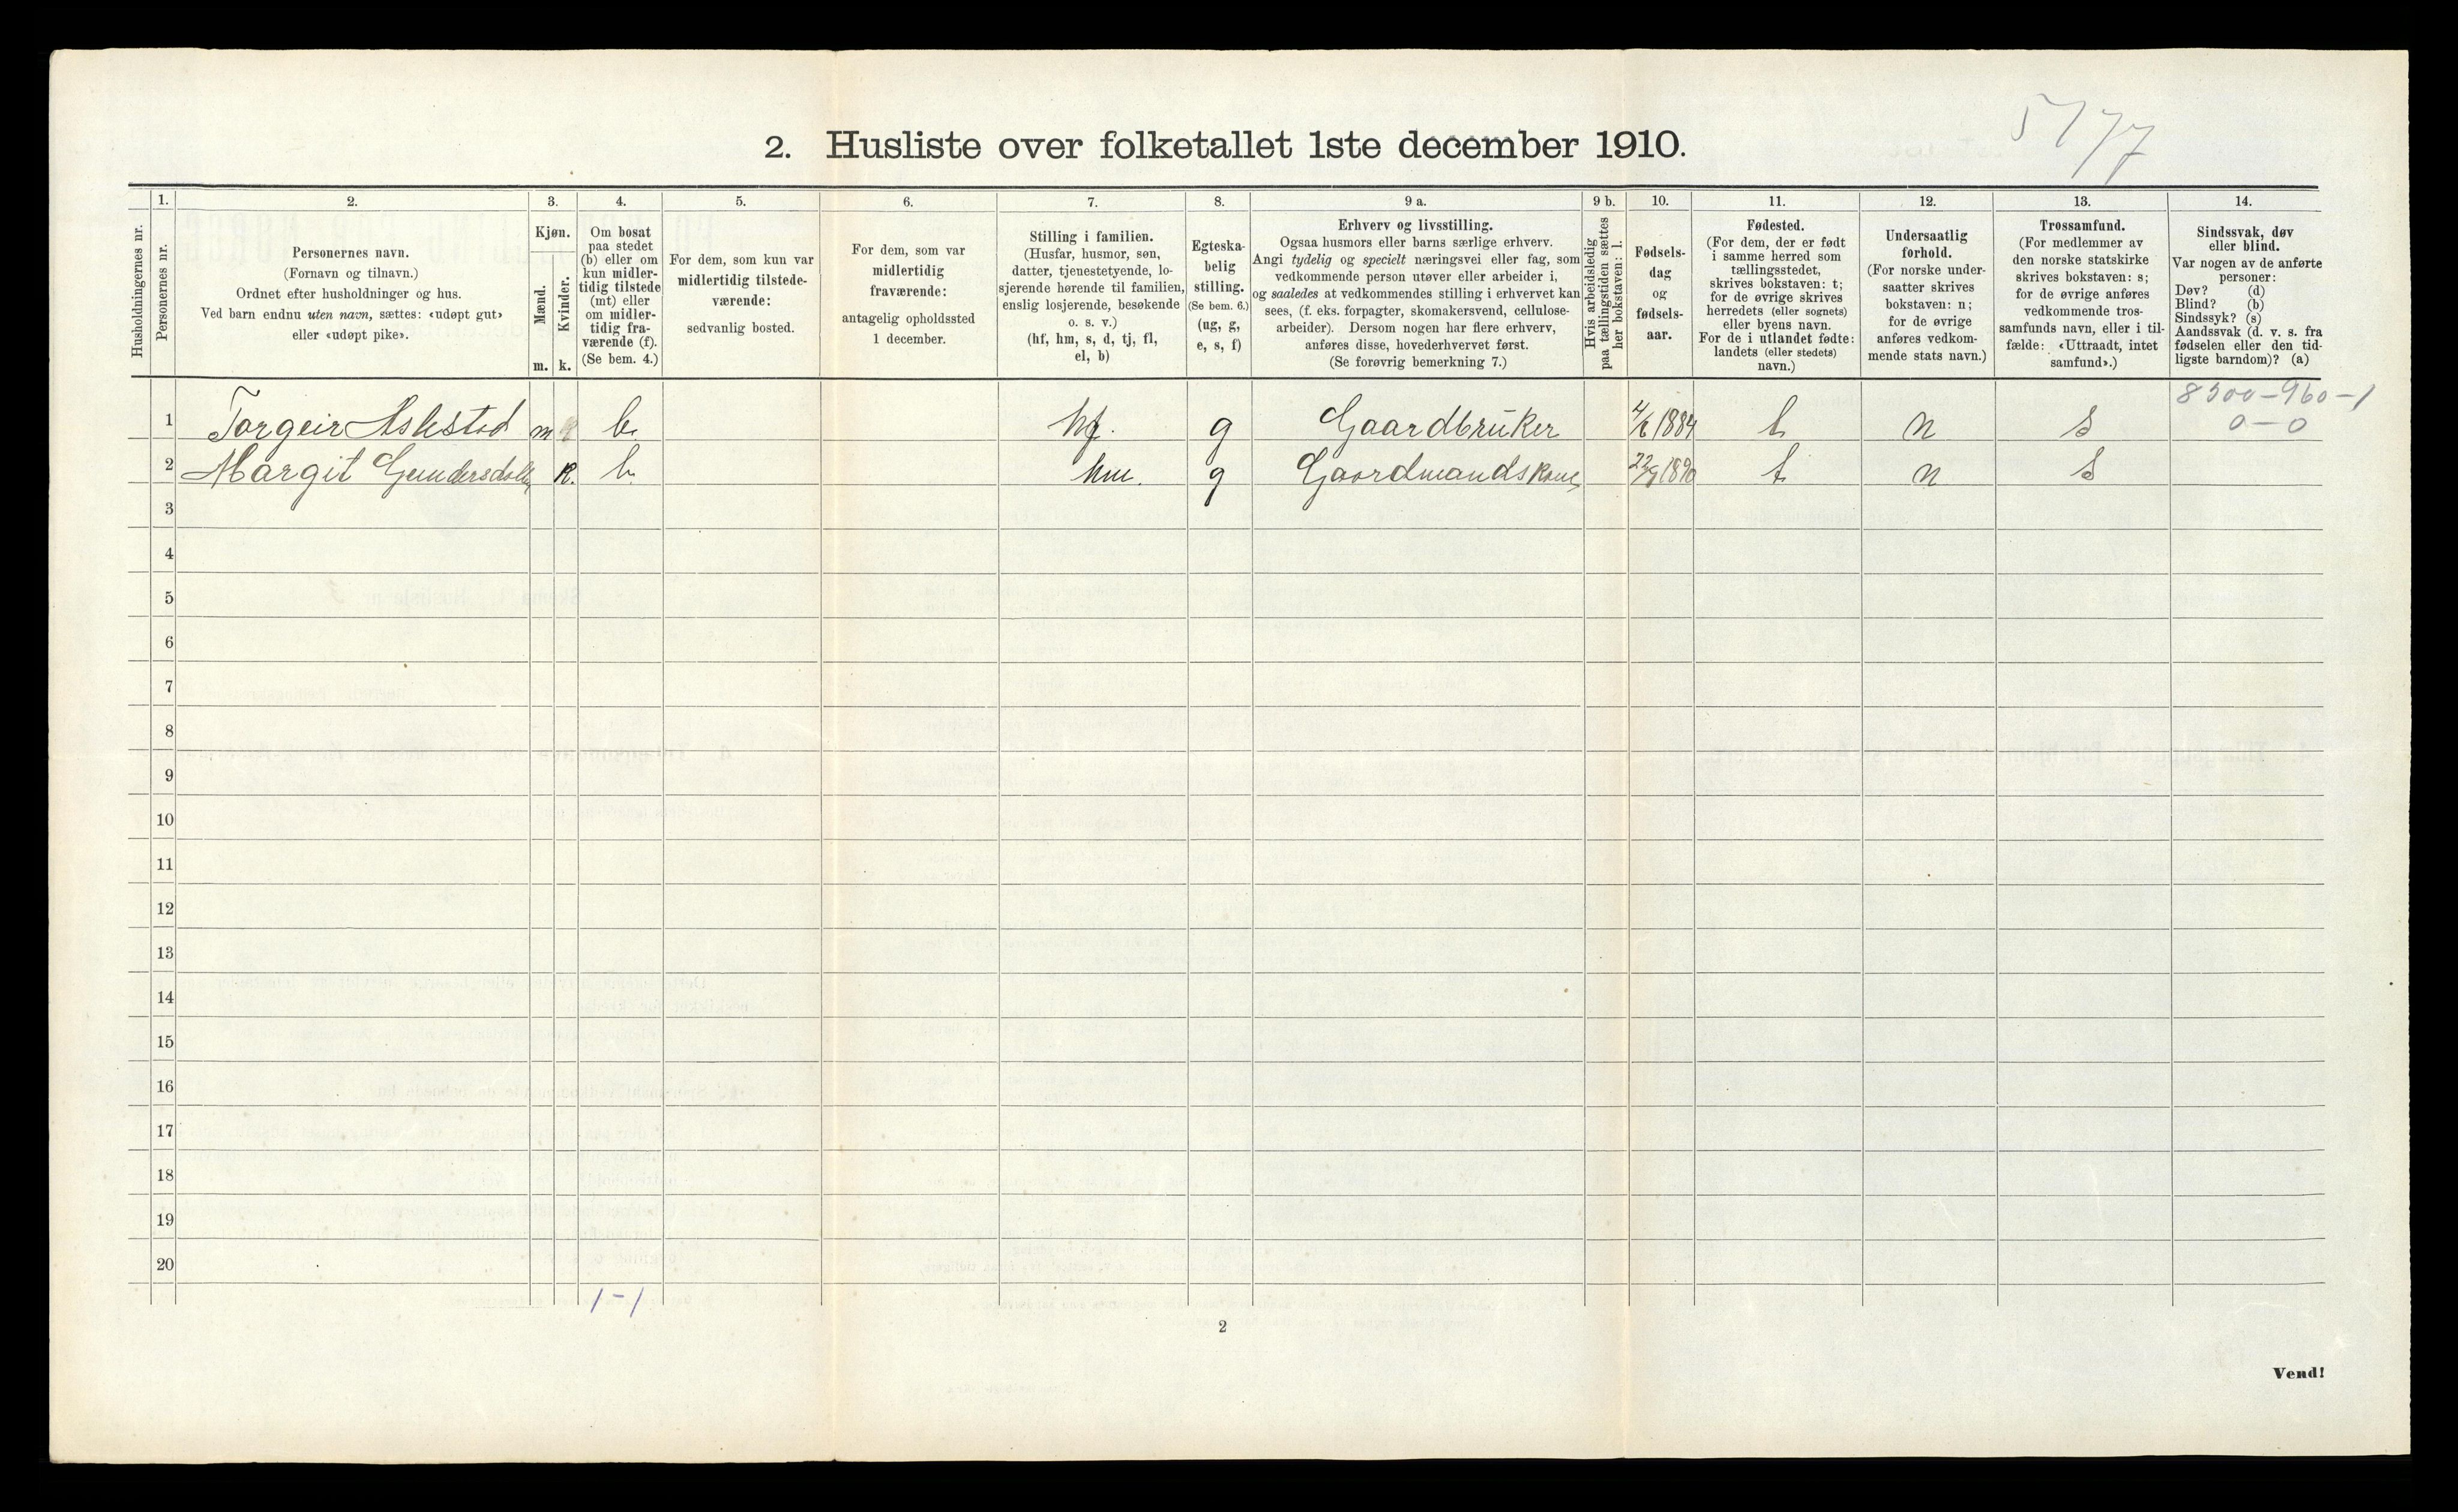 5177
2. Husliste over folketallet 1ste december 1910.
Husholdningernes nr.
1.
Personernes nr.
2.
Personernes navn.
(Fornavn og tilnavn.)
Ordnet efter husholdninger og hus.
Ved barn endnu uten navn, sættes: «udøpt gut»
eller «udøpt pike».
3.
Kjøn.
Mænd.
m.
Kvinder.
k.
4.
Om bosat
paa stedet
(b) eller om
kun midler-
tidig tilstede
(mt) eller
om midler-
tidig fra-
værende (f).
(Se bem. 4.)
5.
For dem, som kun var
midlertidig tilstede-
værende:
sedvanlig bosted.
6.
For dem, som var
midlertidig
fraværende:
antagelig opholdssted
1 december.
7.
Stilling i familien.
(Husfar, husmor, søn,
datter, tjenestetyende, lo-
sjerende hørende til familien,
enslig losjerende, besøkende
o. s. v.)
(hf, hm, s, d, tj, fl,
el, b)
8.
Egteska-
belig
stilling.
(Se bem. 6.)
(ug, g,
e, s, f)
9 a.
Erhverv og livsstilling.
Ogsaa husmors eller barns særlige erhverv.
Angi tydelig og specielt næringsvei eller fag, som
vedkommende person utøver eller arbeider i,
og saaledes at vedkommendes stilling i erhvervet kan
sees, (f. eks. forpagter, skomakersvend, cellulose-
arbeider). Dersom nogen har flere erhverv,
anføres disse, hovederhvervet først.
(Se forøvrig bemerkning 7.)
9 b.
Hvis arbeidsledig
paa tællingstiden sættes
her bokstaven: l.
10.
Fødsels-
dag
og
fødsels-
aar.
11.
Fødested.
(For dem, der er født
i samme herred som
tællingsstedet,
skrives bokstaven: t;
for de øvrige skrives
herredets (eller sognets)
eller byens navn.
For de i utlandet fødte:
landets (eller stedets)
navn.)
12.
Undersaatlig
forhold.
(For norske under-
saatter skrives
bokstaven: n;
for de øvrige
anføres vedkom-
mende stats navn.)
13.
Trossamfund.
(For medlemmer av
den norske statskirke
skrives bokstaven: s;
for de øvrige anføres
vedkommende tros-
samfunds navn, eller i til-
fælde: «Uttraadt, intet
samfund».)
14.
Sindssvak, døv
eller blind.
Var nogen av de anførte
personer:
Døv? (d)
Blind? (b)
Sindssyk? (s)
Aandssvak (d. v. s. fra
fødselen eller den tid-
ligste barndom)? (a)
8500-960-1
0-0
1 Torgeir Askestad m b. hf. g Gaardbrüker 4/6 1884 t n s
2 Margit k. b. hm. g Gaardmandskone 1890 t n s
3
4
5
6
7
8
9
10
11
12
13
14
15
16
17
18
19
20
1-1
2
Vend!